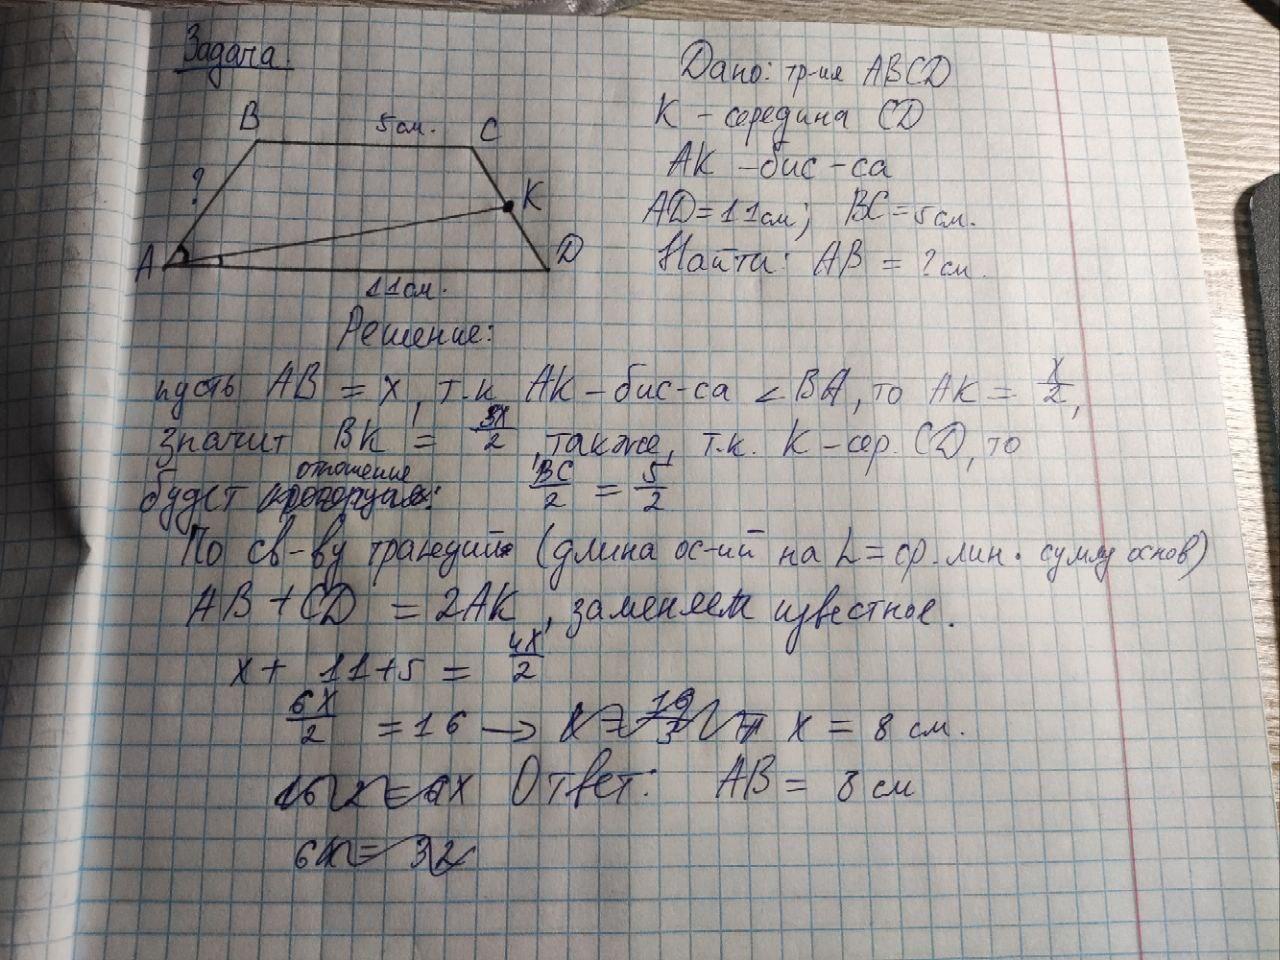 Задача.
Дано: тр-ия ABCD
K - середина CD
AK - бис-са
AD = 11см; BC = 5см.
Найти: AB = ? см.
B 5см. C
?
K
A D
11см.
Решение:
пусть AB = x, т.к. AK - бис-са ∠BA, то AK = x/2,
значит BK = 3x/2, также, т.к. K - сер. CD, то
будет отношение: BC/2 = 5/2
По св-ву трапеций (длина ос-ий на L = ср. лин. сумму основ)
AB + CD = 2AK, заменяем известное.
x + 11 + 5 = 4x/2
6x/2 = 16 → x = 8 см.
Ответ: AB = 8 см
6x = 32